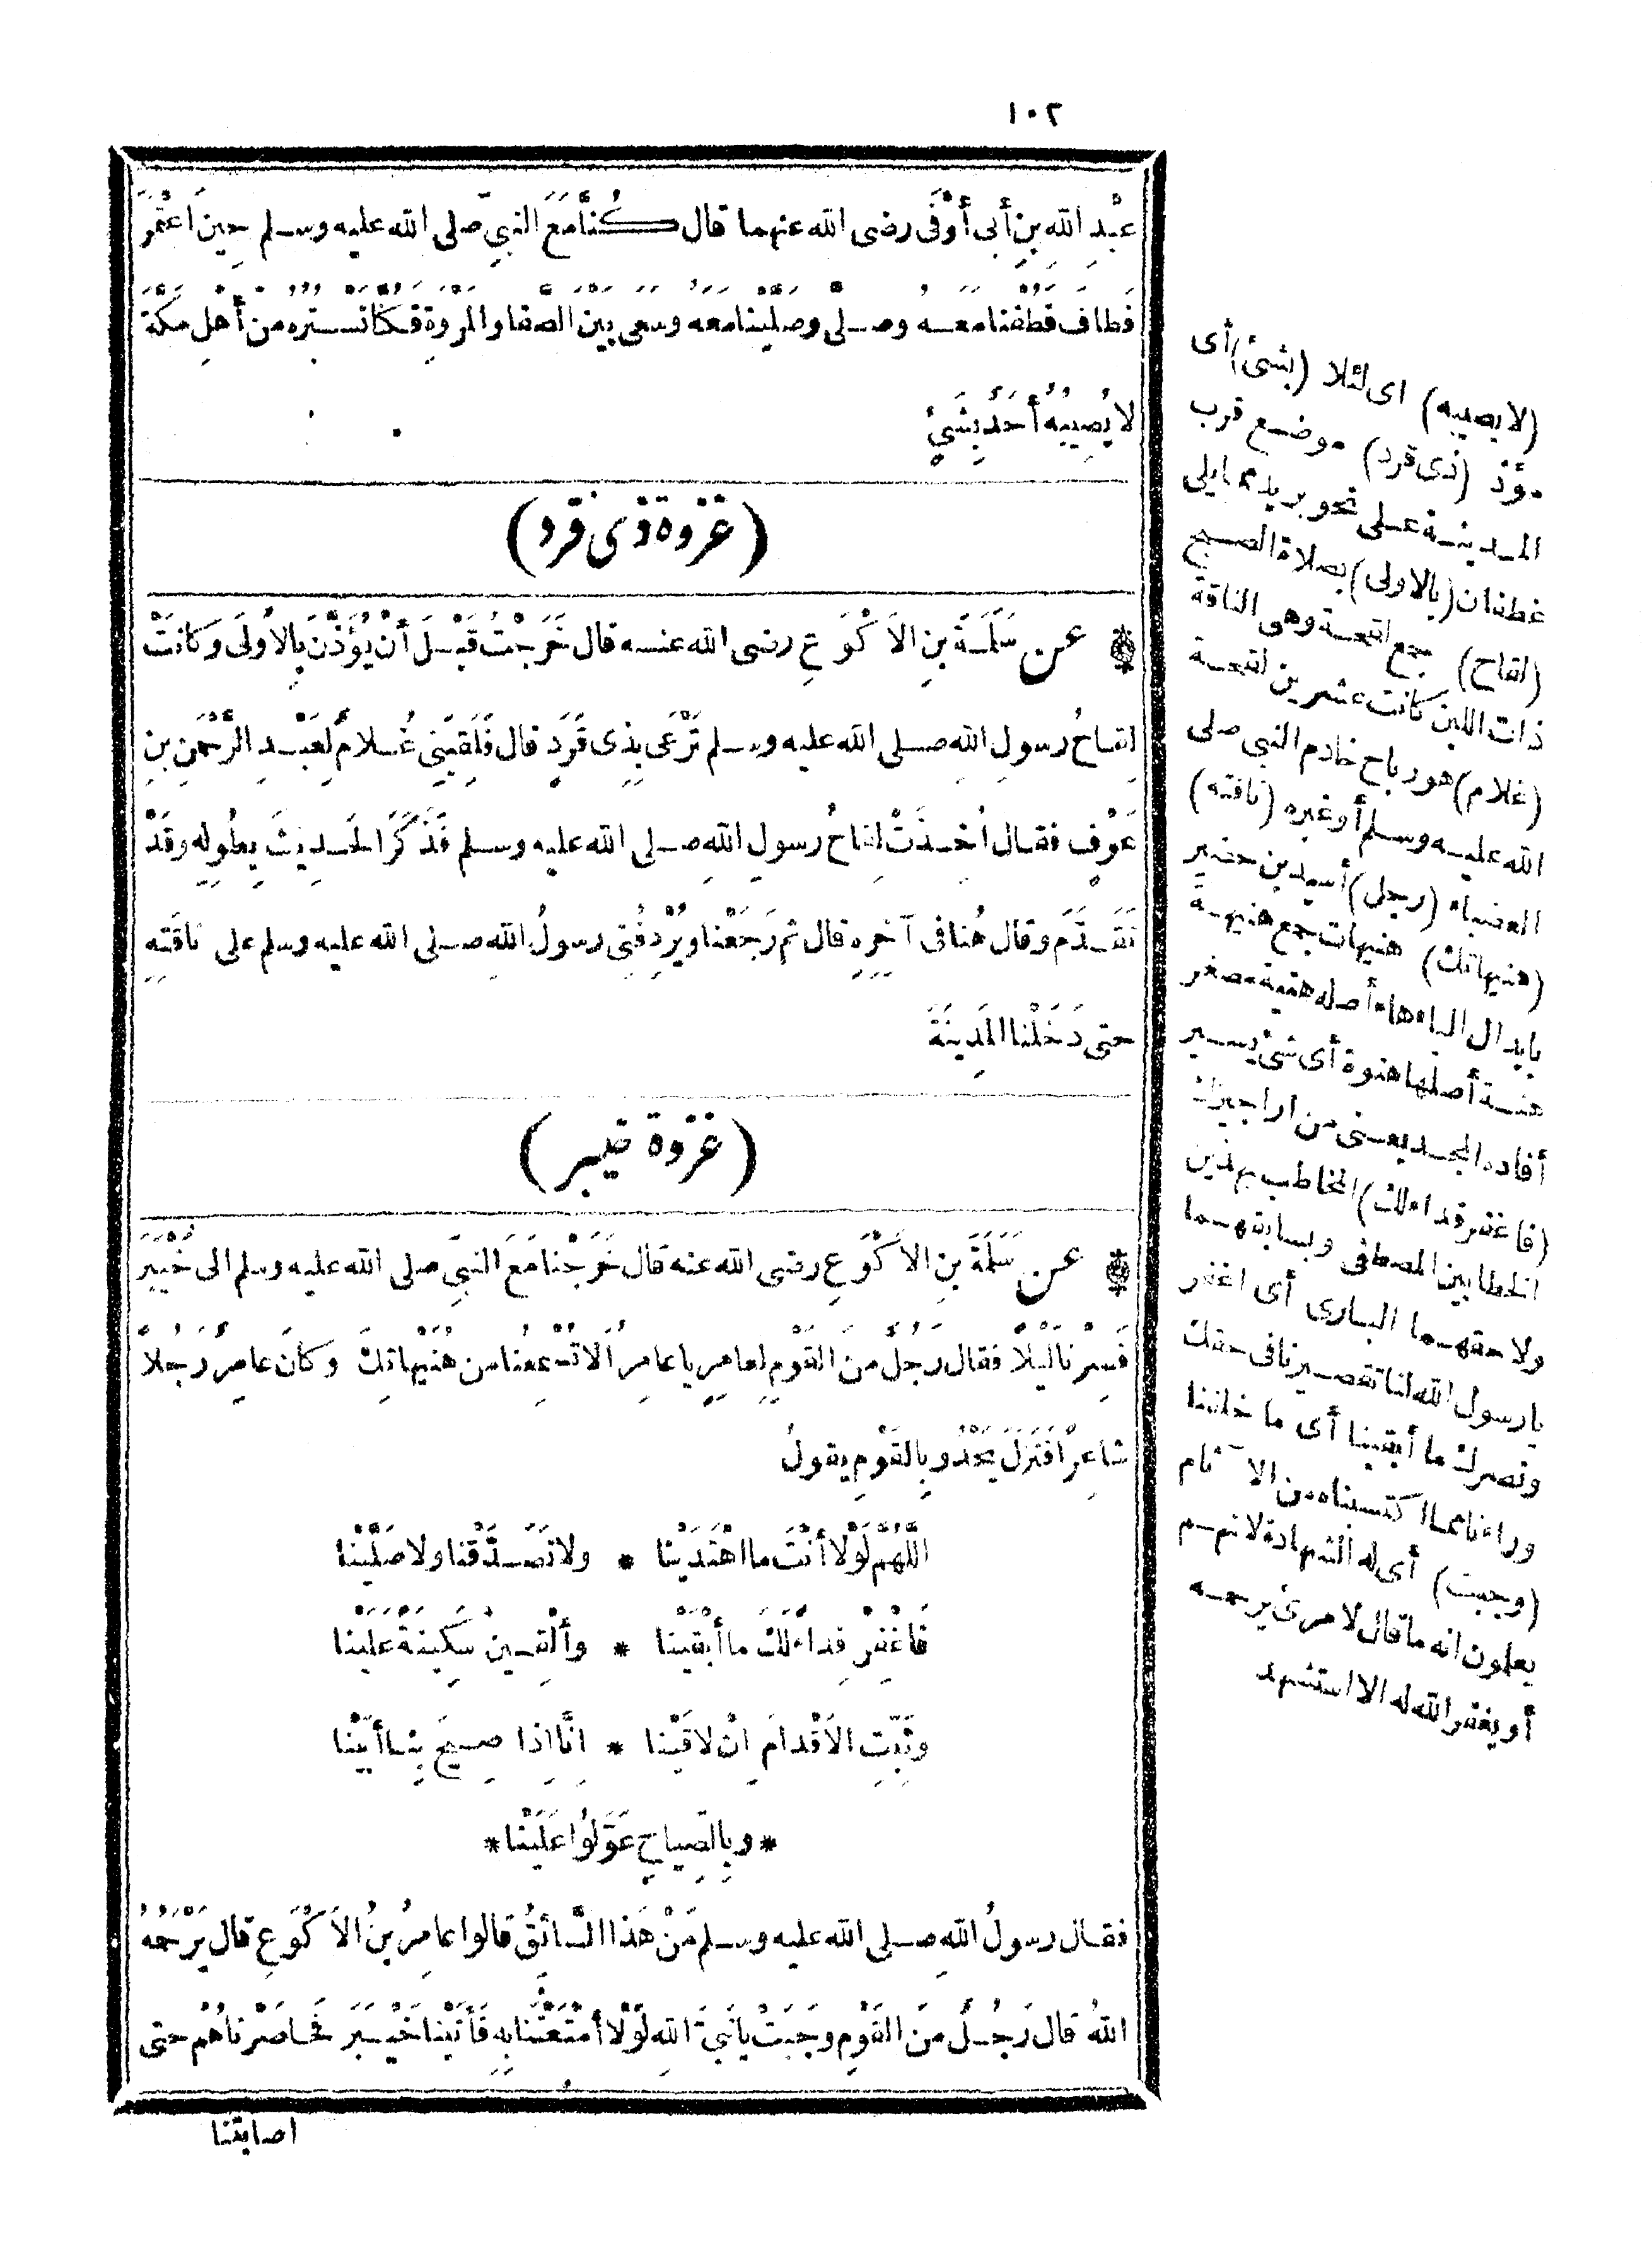 ١٠٢
عَبْدِ اللهِ بنِ أَبى أَوْفَى رضى الله عنهما قال كُنَّا مَعَ النبيّ صلى الله عليه وسلم حِينَ اعْتَمَرَ
فَطافَ فَطُفْنا مَعَهُ وصلَّى وصَلَّيْنا مَعَهُ وسَعى بَيْنَ الصَّفا والمَرْوَةِ فَكُنَّا نَسْتُرُهُ مِنْ أَهْلِ مَكَّةَ
لا يُصِيبُهُ أَحَدٌ بِشَىْءٍ
(غزوة ذى قرد)
عن سَلَمَةَ بنِ الاَكْوَعِ رضى الله عنه قال خَرَجْتُ قَبْلَ أَنْ يُؤَذَّنَ بِالأُولَى وَكانَتْ
لِقاحُ رسولِ اللهِ صلى الله عليه وسلم تَرْعَى بِذِى قَرَدٍ قال فَلَقِيَنِى غُلامٌ لِعَبْدِ الرَّحْمَنِ بنِ
عَوْفٍ فقال أُخِذَتْ لِقاحُ رسولِ اللهِ صلى الله عليه وسلم فَذَكَرَ الحَدِيثَ بِطُولِهِ وقَدْ
تَقَدَّمَ وقال هُنا فى آخِرِهِ قال ثم رَجَعْنا ويُرْدِفُنِى رسولُ اللهِ صلى الله عليه وسلم على ناقَتِهِ
حتى دَخَلْنا المَدِينَةَ
(غزوة خيبر)
عن سَلَمَةَ بنِ الاَكْوَعِ رضى الله عنه قال خَرَجْنا مَعَ النبيّ صلى الله عليه وسلم الى خَيْبَرَ
فَسِرْنا لَيْلاً فقال رَجُلٌ مِنَ القَوْمِ لِعامِرٍ يا عامِرُ أَلا تُسْمِعُنا من هُنَيْهاتِكَ وكانَ عامِرٌ رَجُلاً
شاعِرًا فَنَزَلَ يَحْدُو بِالقَوْمِ يقولُ
اللَّهُمَّ لَوْلا أَنْتَ ما اهْتَدَيْنا * ولا تَصَدَّقْنا ولا صَلَّيْنا
فَاغْفِرْ فِداءً لَكَ ما أَبْقَيْنا * وأَلْقِيَنْ سَكِينَةً عَلَيْنا
وثَبِّتِ الاَقْدامَ اِنْ لاقَيْنا * اِنَّا اِذا صِيحَ بِنا أَبَيْنا
* وبِالصِّياحِ عَوَّلُوا عَلَيْنا *
فقال رسولُ اللهِ صلى الله عليه وسلم مَنْ هَذا السَّائِقُ قالوا عامِرُ بنُ الاَكْوَعِ قال يَرْحَمُهُ
اللهُ قال رَجُلٌ مِنَ القَوْمِ وجَبَتْ يا نَبِىَّ اللهِ لَوْلا أَمْتَعْتَنا بِهِ فَأَتَيْنا خَيْبَرَ فَحاصَرْناهُمْ حتى
اصابتنا
(لا يصيبه) اى لئلا (بشئ) أى
مؤذ (ذى قرد) موضع قرب
المدينة على نحو بريد مما يلى
غطفان (بالاولى) بصلاة الصبح
(لقاح) جمع لقحة وهى الناقة
ذات اللبن كانت عشرين لقحة
(غلام) هو رباح خادم النبى صلى
الله عليه وسلم أو غيره (ناقته)
العضباء (رجل) أسيد بن حضير
(هنيهاتك) هنيهات جمع هنيهة
بابدال الياء هاء أصله هنية مصغر
هنة أصلها هنوة أى شئ يسير
أفاده المجد يعنى من اراجيزك
(فاغفر فداء لك) المخاطب بهذين
الخطابين المصطفى وبسابقهما
ولاحقهما البارى أى اغفر
يارسول الله لنا تقصيرنا فى حقك
ونصرك ما أبقينا أى ما خلفنا
وراءنا مما اكتسبناه من الآثام
(وجبت) أى له الشهادة لانهم
يعلمون انه ما قال لامرئ يرحمه
أو يغفر الله له الا استشهد